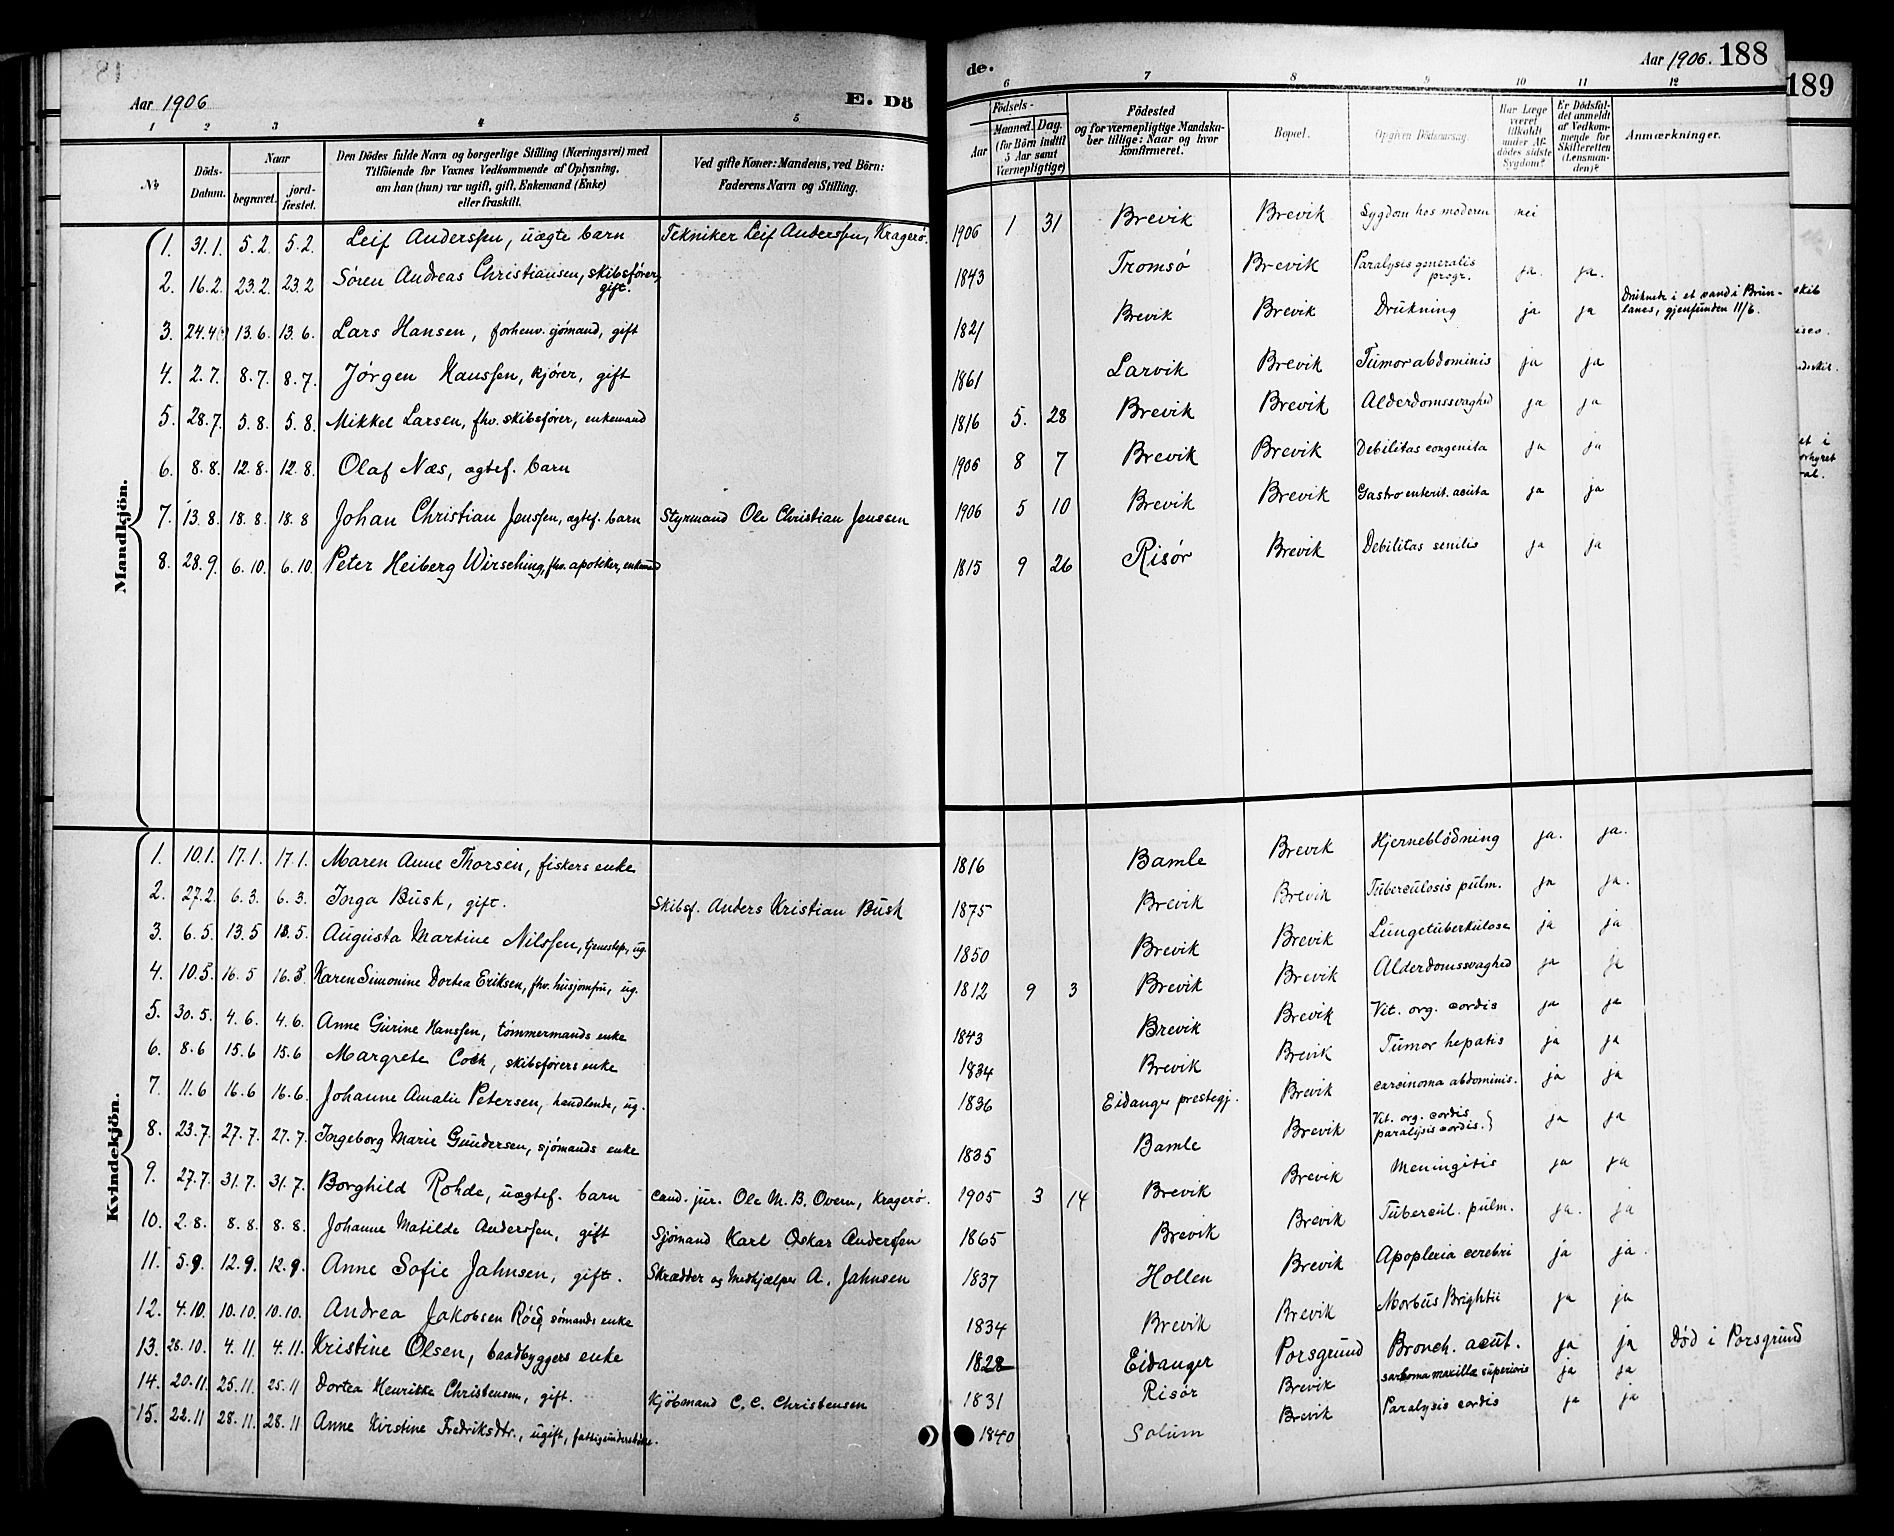 Aar 1906
E. Dö
de.
Aar 1906. 188
189
1 2 3 4 5 6 7 8 9 10 11 12
No
Döds-Datum.
Naar
begravet. jord-fæstet.
Den Dödes fulde Navn og borgerlige Stilling (Næringsvei) med
Tilföiende for Voxnes Vedkommende af Oplysning,
om han (hun) var ugift, gift, Enkemand (Enke)
eller fraskilt.
Ved gifte Koner: Mandens, ved Börn:
Faderens Navn og Stilling.
Födsels-
Aar Maaned. Dag.
(for Börn indtil 5 Aar samt Værnepligtige)
Födested
og for værnepligtige Mandska-
ber tillige: Naar og hvor
konfirmeret.
Bopæl.
Opgiven Dödsaarsag.
Har Læge været tilkaldt under Af-dödes sidste Sygdom?
Er Dödsfal-det anmeldt af Vedkom-mende for Skifteretten (Lensman-den)?
Anmærkninger.
Mandkjön.
1. 31.1. 5.2. 5.2. Leif Anderssen, uægte barn Tekniker Leif Anderssen, Kragerø. 1906 1 31 Brevik Brevik Sygdom hos moderen nei
2. 16.2. 23.2. 23.2 Søren Andreas Christiansen, skibsfører, gift. 1843 Tromsø Brevik Paralysis generalis progr. ja. ja.
3. 24.4 13.6. 13.6. Lars Hansen, forhenv. sjømand, gift 1821 Brevik Brevik Drukning ja ja Druknede i et vand i Brun-
lanes, gjenfunden 11/6.
4. 2.7. 8.7. 8.7. Jørgen Hanssen, kjører, gift 1861 Larvik Brevik Tumor abdominis ja ja
5. 28.7. 5.8. 5.8. Mikkel Larsen, fhv. skibsfører, enkemand 1816 5. 28 Brevik Brevik Alderdomssvaghed ja ja
6. 8.8. 12.8. 12.8. Olaf Næs, ægtef. barn 1906 8 7 Brevik Brevik Debilitas congenita ja ja
7. 13.8. 18.8. 18.8 Johan Christian Jenssen, ægtef. barn Styrmand Ole Christian Jenssen 1906 5 10 Brevik Brevik Gastro enterit. acuta ja ja
8. 28.9. 6.10. 6.10. Peter Heiberg Wirsching, fhv. apoteker, enkemand 1815 9 26 Risør Brevik Debilitas senilis ja ja
Kvindekjön.
1. 10.1. 17.1. 17.1. Maren Anne Thorsen, fiskers enke 1816 Bamle Brevik Hjerneblødning ja. ja.
2. 27.2. 6.3. 6.3. Inga Busk, gift. Skibsf. Anders Kristian Busk 1875 Brevik Brevik Tuberculosis pulm. ja ja.
3. 6.5. 13.5 13.5. Augusta Martine Nilssen, tjenestep., ug. 1850 Brevik Brevik Lungetuberkulose ja ja
4. 10.5. 16.5 16.5. Karen Simonine Dortea Eriksen, fhv. husjomfru, ug. 1812 9 3 Brevik Brevik Alderdomssvaghed ja ja
5. 30.5. 4.6. 4.6. Anne Gurine Hanssen, tømmermands enke 1843 Brevik Brevik Vit. org. cordis ja ja
6. 8.6 15.6 15.6 Margrete Coch, skibsførers enke 1834 Brevik Brevik Tumor hepatis ja ja
7. 11.6 16.6 16.6. Johanne Amalie Petersen, handlende, ug. 1836 Eidanger prestegj. Brevik carcinoma abdominis. ja ja
8. 23.7. 27.7. 27.7. Ingeborg Marie Gundersen, sjømands enke 1835 Bamle Brevik Vit. org. cordis paralysis cordis. ja ja
9. 27.7. 31.7. 31.7. Borghild Rohde, uægtef. barn cand. jur. Ole M. B. Overn, Kragerø. 1905 3 14 Brevik Brevik Meningitis ja ja
10. 2.8. 8.8. 8.8. Johanne Matilde Anderssen, gift Sjømand Karl Oskar Anderssen 1865 Brevik Brevik Tubercul. pulm. ja. ja
11. 5.9. 12.9. 12.9. Anne Sofie Jahnsen, gift. Skrædder og Medhjælper A. Jahnsen 1837 Hollen Brevik Apoplexia cerebri ja ja.
12. 4.10. 10.10. 10.10. Andrea Jakobsen Röed, sømands enke 1834 Brevik Brevik Morbus Brightii ja ja
13. 28.10. 4.11. 4.11. Kristine Olsen, baadbyggers enke 1828 Eidanger Porsgrund Bronch. acut. ja ja Død i Porsgrund
14. 20.11. 25.11. 25.11 Dortea Henrikke Christensen, gift. Kjøbmand C. C. Christensen 1831 Risør Brevik sarkoma maxillæ superioris ja ja
15. 22.11 28.11. 28.11 Anne Kirstine Fredriksdtr., ugift, 1840 Solum Brevik Paralysis cordis ja ja